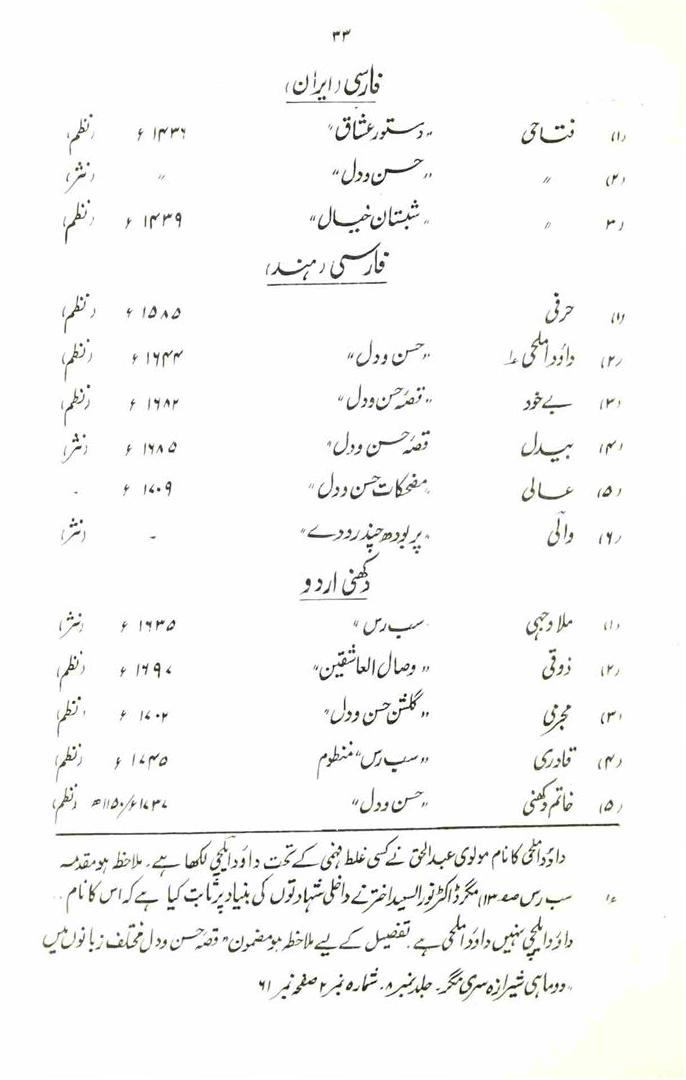 ۳۳
فارسی (ایران)
(۱) فتاحی "دستور عشاق" ۱۴۳۶ ء (نظم)
(۲) " "حسن و دل" " (نثر)
(۳) " "شبستان خیال" ۱۴۳۹ ء (نظم)
فارسی (ہند)
(۱) حرفی ۱۵۸۵ ء (نظم)
(۲) داؤد املحی ؎۱ "حسن و دل" ۱۶۴۴ ء (نظم)
(۳) بے خود "قصۂ حسن و دل" ۱۶۸۲ ء (نظم)
(۴) بیدل قصۂ حسن و دل" ۱۶۸۵ ء (نثر)
(۵) عالی "مضحکات حسن و دل" ۱۷۰۹ ء -
(۶) والی "پربودھ چندر ودے" - (نثر)
دکھنی اردو
(۱) ملا وجہی "سب رس" ۱۶۳۵ ء (نثر)
(۲) ذوقی "وصال العاشقین" ۱۶۹۷ ء (نظم)
(۳) مجرمی "گلشن حسن و دل" ۱۷۰۲ ء (نظم)
(۴) قادری "سب رس" منظوم ۱۷۴۵ ء (نظم)
(۵) خاتم دکھنی "حسن و دل" ۱۷۳۷ء/۱۱۵۰ھ (نظم)
داؤد املحی کا نام مولوی عبدالحق نے کسی غلط فہمی کے تحت داؤد ایلچی لکھا ہے۔ ملاحظہ ہو مقدمہ
؎۱ سب رس صفحہ ۱۳) مگر ڈاکٹر نور السعید اختر نے داخلی شہادتوں کی بنیاد پر ثابت کیا ہے کہ اس کا نام ..
داؤد ایلچی نہیں داؤد املحی ہے۔ تفصیل کے لیے ملاحظہ ہو مضمون "قصہ حسن و دل مختلف زبانوں میں
"دو ماہی شیرازہ سری نگر۔ جلد نمبر ۸۔ شمارہ نمبر ۲ صفحہ نمبر ۶۱